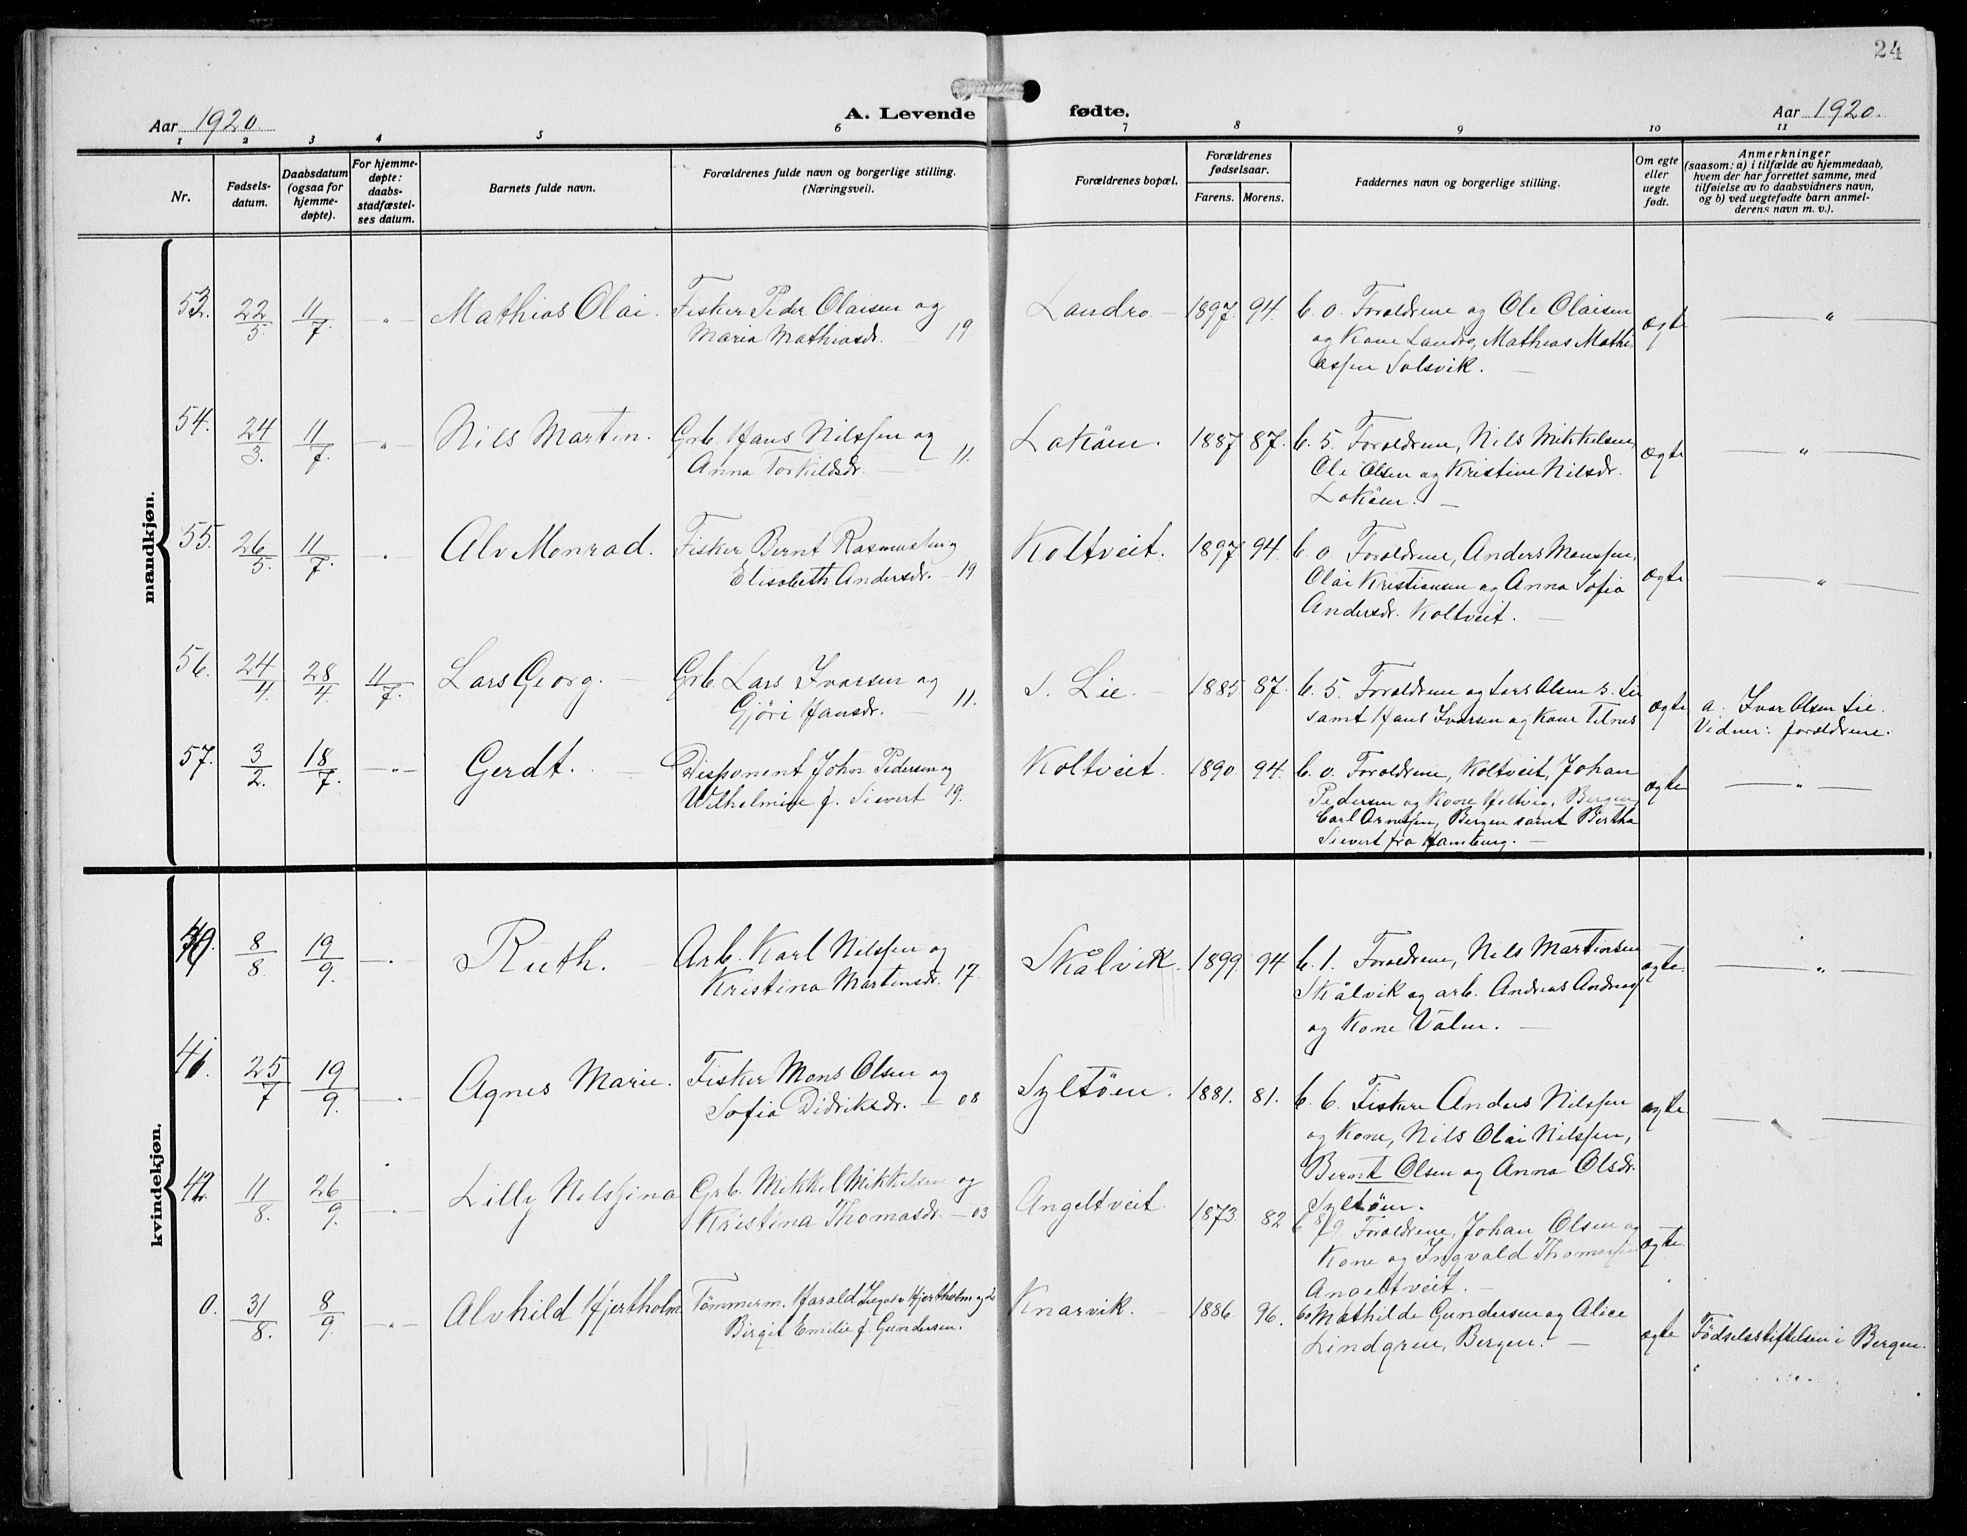 24
Aar 1920.
A. Levende fødte.
Aar 1920.
1 2 3 4 5 6 7 8 9 10 11
Nr.
Fødsels-
datum.
Daabsdatum
(ogsaa for
hjemme-
døpte).
For hjemme-
døpte:
daabs-
stadfæstel-
ses datum.
Barnets fulde navn.
Forældrenes fulde navn og borgerlige stilling.
(Næringsvei).
Forældrenes bopæl.
Forældrenes
fødselsaar.
Farens. Morens.
Faddernes navn og borgerlige stilling.
Om egte
eller
uegte
født.
Anmerkninger
(saasom: a) i tilfælde av hjemmedaab,
hvem der har forrettet samme, med
tilføielse av to daabsvidners navn,
og b) ved uegtefødte barn anmel-
derens navn m. v.).
mandkjøn.
53. 22/5 11/7 -"- Mathias Olai. Fisker Peder Olaisen og
Maria Mathiasdr. 19.
Landro - 1897. 94. b. 0. Forældrene og Ole Olaisen
og Kone Landro, Mathias Mathi
assen Solsvik. -
ægte - " -
54. 24/3. 11/7 -"- Nils Martin. Grb. Hans Nilssen og
Anna Torkildsdr. - 11.
Lokøen. 1887 87. b. 5. Forældrene, Nils Mikkelsen,
Ole Olsen og Kristine Nilsdr.
Lokøen. -
ægte - " -
55. 26/5 11/7 " Alv Monrad. Fisker Bernt Rasmussen og
Elisabeth Andersdr. - 19
Koltveit. 1897 94. b. 0. Forældrene, Anders Monssen,
Olai Kristiansen og Anna Sofia
Andersdr. Koltveit. -
ægte - " -
56. 24/11 28/4 11/7. Lars Georg. - Grb. Lars Ivarsen og
Gjøri Hansdr. - 11.
S. Lie. - 1885 87. b. 5. Forældrene og Lars Olsen s. Lie
samt Hans Ivarsen og Kone Telnes
ægte a. Ivar Olsen Lie.
Vidner: forældrene.
57. 3/2. 18/7. -"- Gerdt. - Disponent John Pedersen og
Wilhelmine f. Sievert 19.
Koltveit. 1890. 94. b. 0. Forældrene, Koltveit, Johan
Pedersen og Kone Heltvig, Bergen
Carl Arnesen, Bergen samt Bertha
Sievert fra Hamburg. -
ægte - " -
kvindekjøn.
8/8. 19/9. -"- Ruth. - Arb. Karl Nilssen og
Kristina Martinsdr. 17.
Skålvik. 1899. 94 b. 1. Forældrene, Nils Martinsen
Skålvik og arb. Andreas Andreas
og Kone Vålen. -
ægte. - " -
41. 25/7 19/9. -"- Agnes Marie. Fisker Mons Olsen og
Sofia Didriksdr. - 08
Syltøen. 1881. 81. b. 6. Fiskere Anders Nilssen
og Kone, Nils Olai Nilssen,
Bernt Olsen og Anna Olsdr.
Syltøen.
ægte - " -
42. 11/8. 26/9. -"- Lilly Nilssina Grb. Mikkel Mikkelsen og
Kristina Thomasdr. - 03
Angeltveit. 1873. 82 b 8/9. Forældrene, Johan Olsen og
Kone og Ingvald Thomassen
Angeltveit. -
ægte.
0. 31/8. 8/9. -"- Alvhild Hjertholm Tømmerm. Harald Hjertholm og
Birgit Emilie f. Gundersen.
Knarvik. - 1886. 96. Mathilde Gundersen og Alice
Lindgren, Bergen. -
ægte Fødselsstiftelsen i Bergen.